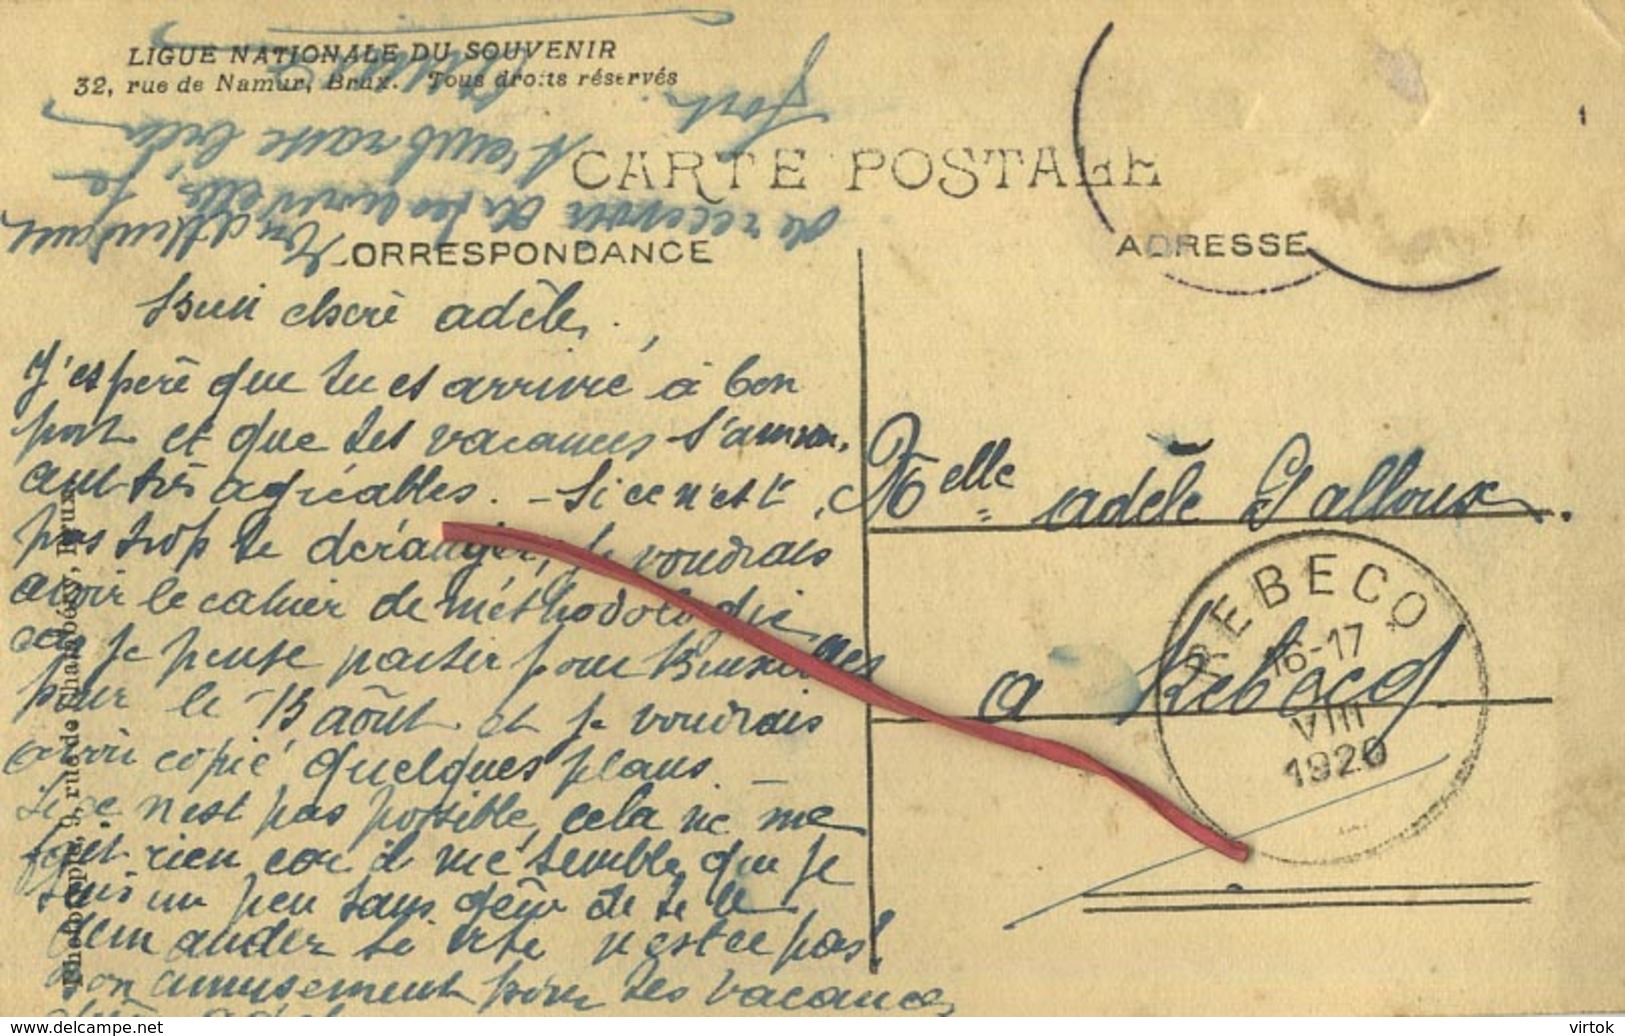 LIGUE NATIONALE DU SOUVENIR
32, rue de Namur, Brux. Tous droits réservés
CARTE POSTALE
CORRESPONDANCE
ADRESSE
Bien cheré adèle,
J'esperè que tu es arrivié à bon
port et que tes vacances s'annon-
cent très agréables. - Si ce n'est
pas trop te déranger, je voudrais
avoir le cahier de méthodologie
car je pense partir pour Bruxelles
pour le 15 août et je voudrais
avoir copié quelques plans. -
Si ce n'est pas possible, cela ne me
fait rien car il me semble que je
suis un peu sans gêne de te le
demander si vite n'est ce pas!
Bon amusement pour tes vacances
En attendant
de recevoir de tes nouvelles, je
t'embrasse bien
fort.
Melle adèle Galloux.
a Rebecq
REBECQ
16-17
VIII
1920
Phototypie, 9, rue de Chambéry, Brux.
virtok